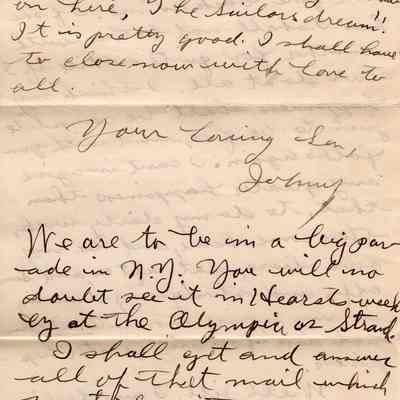 on here, "The Sailors dream"!!
It is pretty good. I shall have
to close now with love to
all.
Your loving Son,
Johnny
We are to be in a big par-
ade in N.Y. You will no
doubt see it in Hearsts week
ly at the Olympia or Strand.
I shall get and answer
all of thet mail which